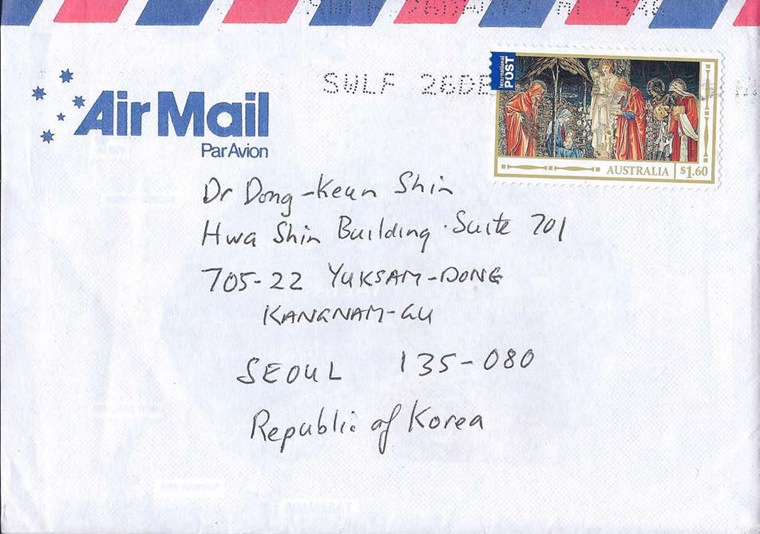 SWLF 26DE
International
POST
AUSTRALIA $1.60
Air Mail
Par Avion
Dr Dong-Keun Shin
Hwa Shin Building · Suite 701
705-22 YUKSAM-DONG
KANGNAM-GU
SEOUL 135-080
Republic of Korea